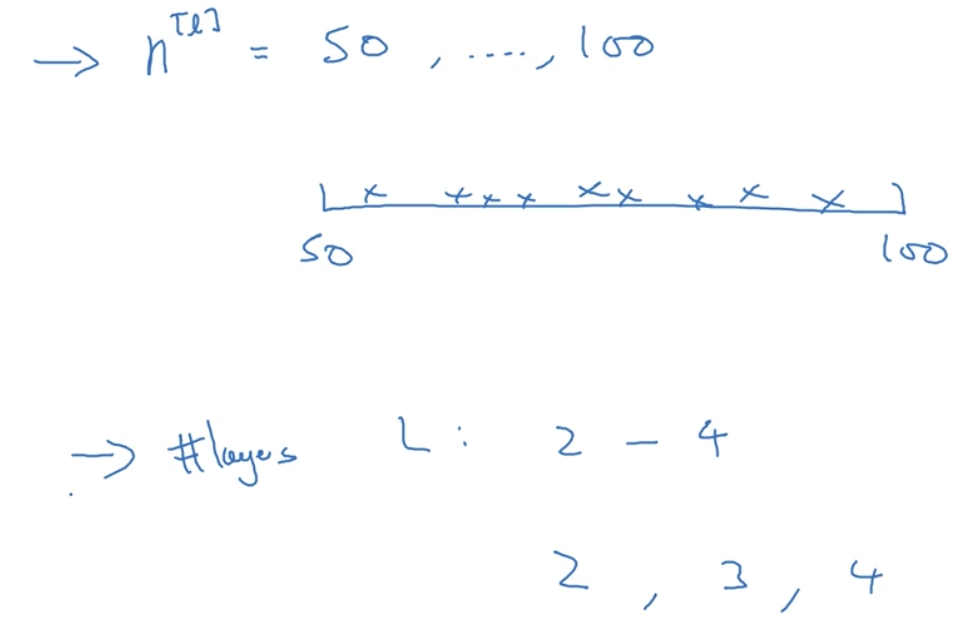 → n[l] = 50 , ...., 100
50 100
→ #layers L : 2 - 4
2 , 3 , 4